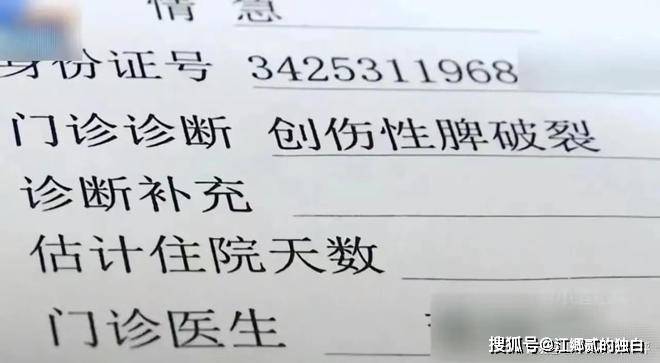 情 急
身份证号 3425311968
门诊诊断 创伤性脾破裂
诊断补充
估计住院天数
门诊医生
搜狐号@江郷贰的独白